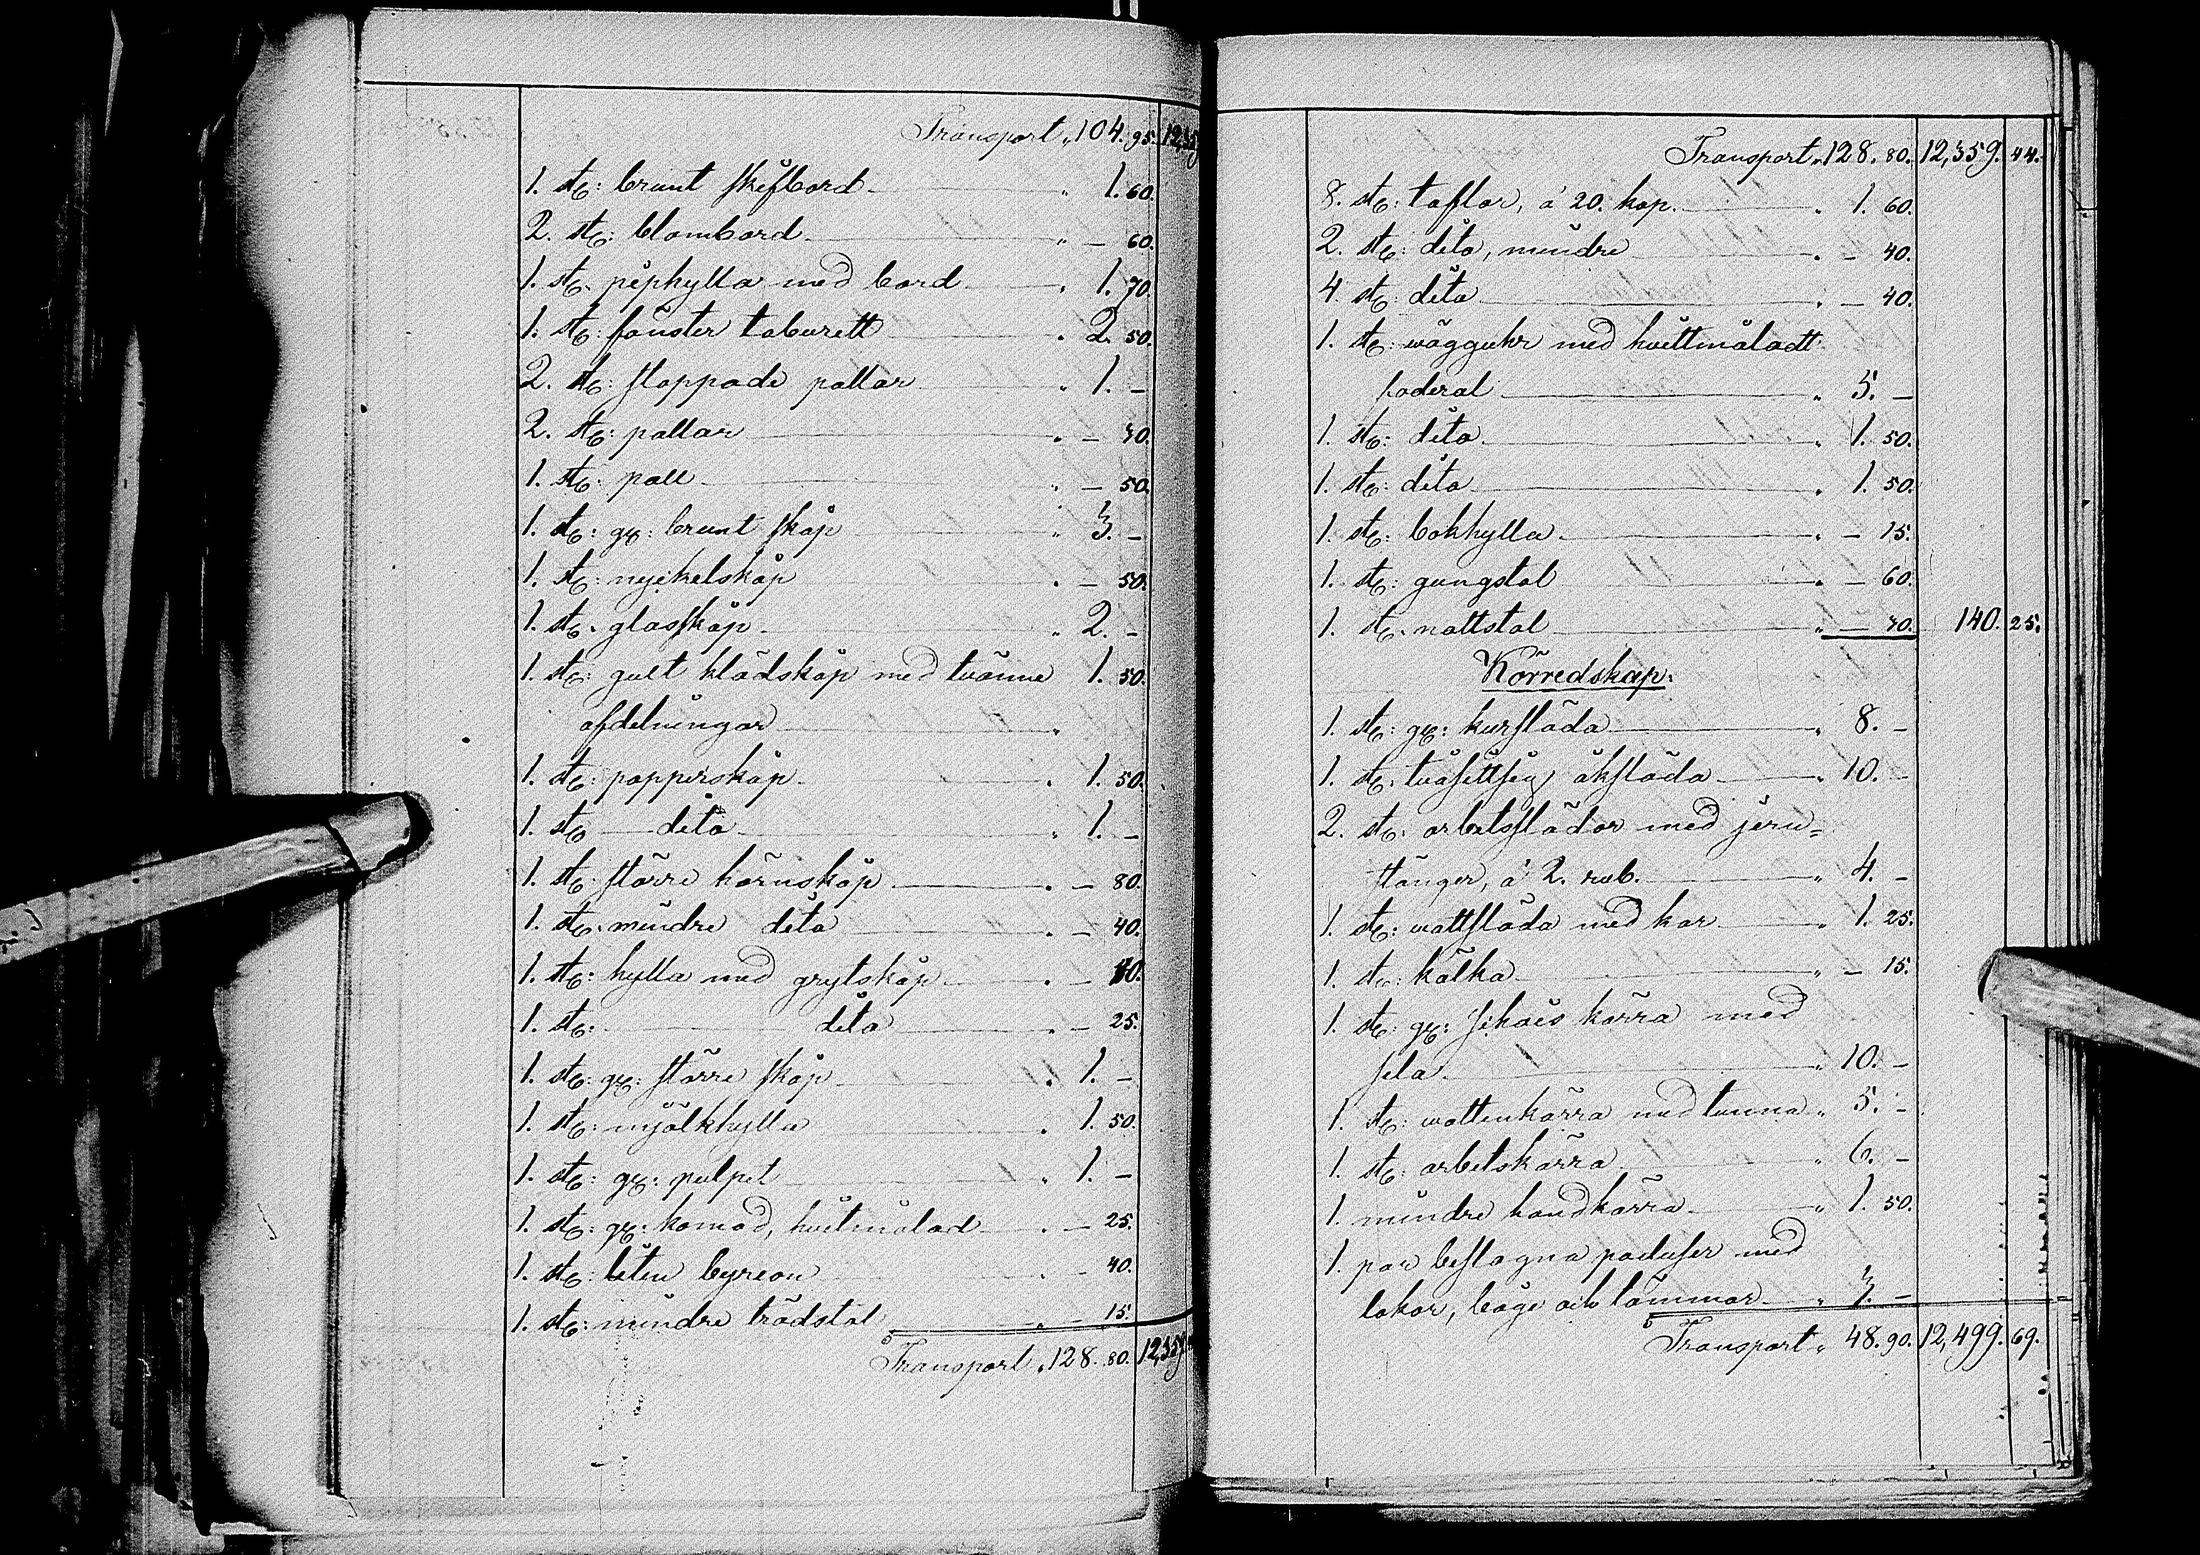 Transport „ 104. 95. 12,359
1. st: brunt skifbord „ 1. 60.
2. st: blombord „ – 60.
1. st. piphylla med bord „ 1. 70.
1. st: fönster taburett „ 2. 50.
2. st: stoppade pallar „ 1. –
2. st: pallar „ – 30.
1. st: pall „ – 50.
1. st: gl: brunt skåp „ 3. –
1. st: nyckelskåp „ – 50.
1. st. glasskåp „ 2. –
1. st: gult klädskåp med tvänne 1. 50.
afdelningar „
1. st: papperskåp „ 1. 50.
1. st dito „ 1. –
1. st: större hörnskåp „ – 80.
1. st. mindre dito „ – 40.
1. st: hylla med grytskåp „ – 40.
1. st: dito „ – 25.
1. st: gl: större skåp „ 1. –
1. st: mjölkhylla „ 1. 50.
1. st: gl: pulpet „ 1. –
1. st: gl: komod, hvitmålad „ – 25.
1. st: liten byreau „ – 40.
1. st: mindre trädstol „ – 15.
Transport „ 128. 80. 12,359
Transport „ 128. 80. 12,359. 44.
8. st: taflor, á 20. kop. „ 1. 60.
2. st: dito, mindre „ – 40.
4 st: dito „ – 40.
1. st: vägguhr med hvittmåladt
foderal „ 5. –
1. st: dito „ 1. 50.
1. st: dito „ 1. 50.
1. st: bokhylla „ – 15.
1. st: gungstol „ – 60.
1. st. nattstol „ – 30. 140. 25.
Körredskap.
1. st: gl: kursläda „ 8. –
1. st. tvåsittsig åksläda „ 10. –
2. st: arbetsslädor med jern=
stänger, á 2. rub. „ 4. –
1. st: vattsläda med kar „ 1. 25.
1. st: kälka „ – 15.
1. st: gl: schäs kärra med
sela „ 10. –
1. st: vattenkärra med tunna „ 5. –
1. st: arbetskärra „ 6. –
1. mindre handkärra „ 1. 50.
1. par beslagna paduser med
lokor, båge och tömmar „ 3. –
Transport „ 48. 90. 12,499. 69.